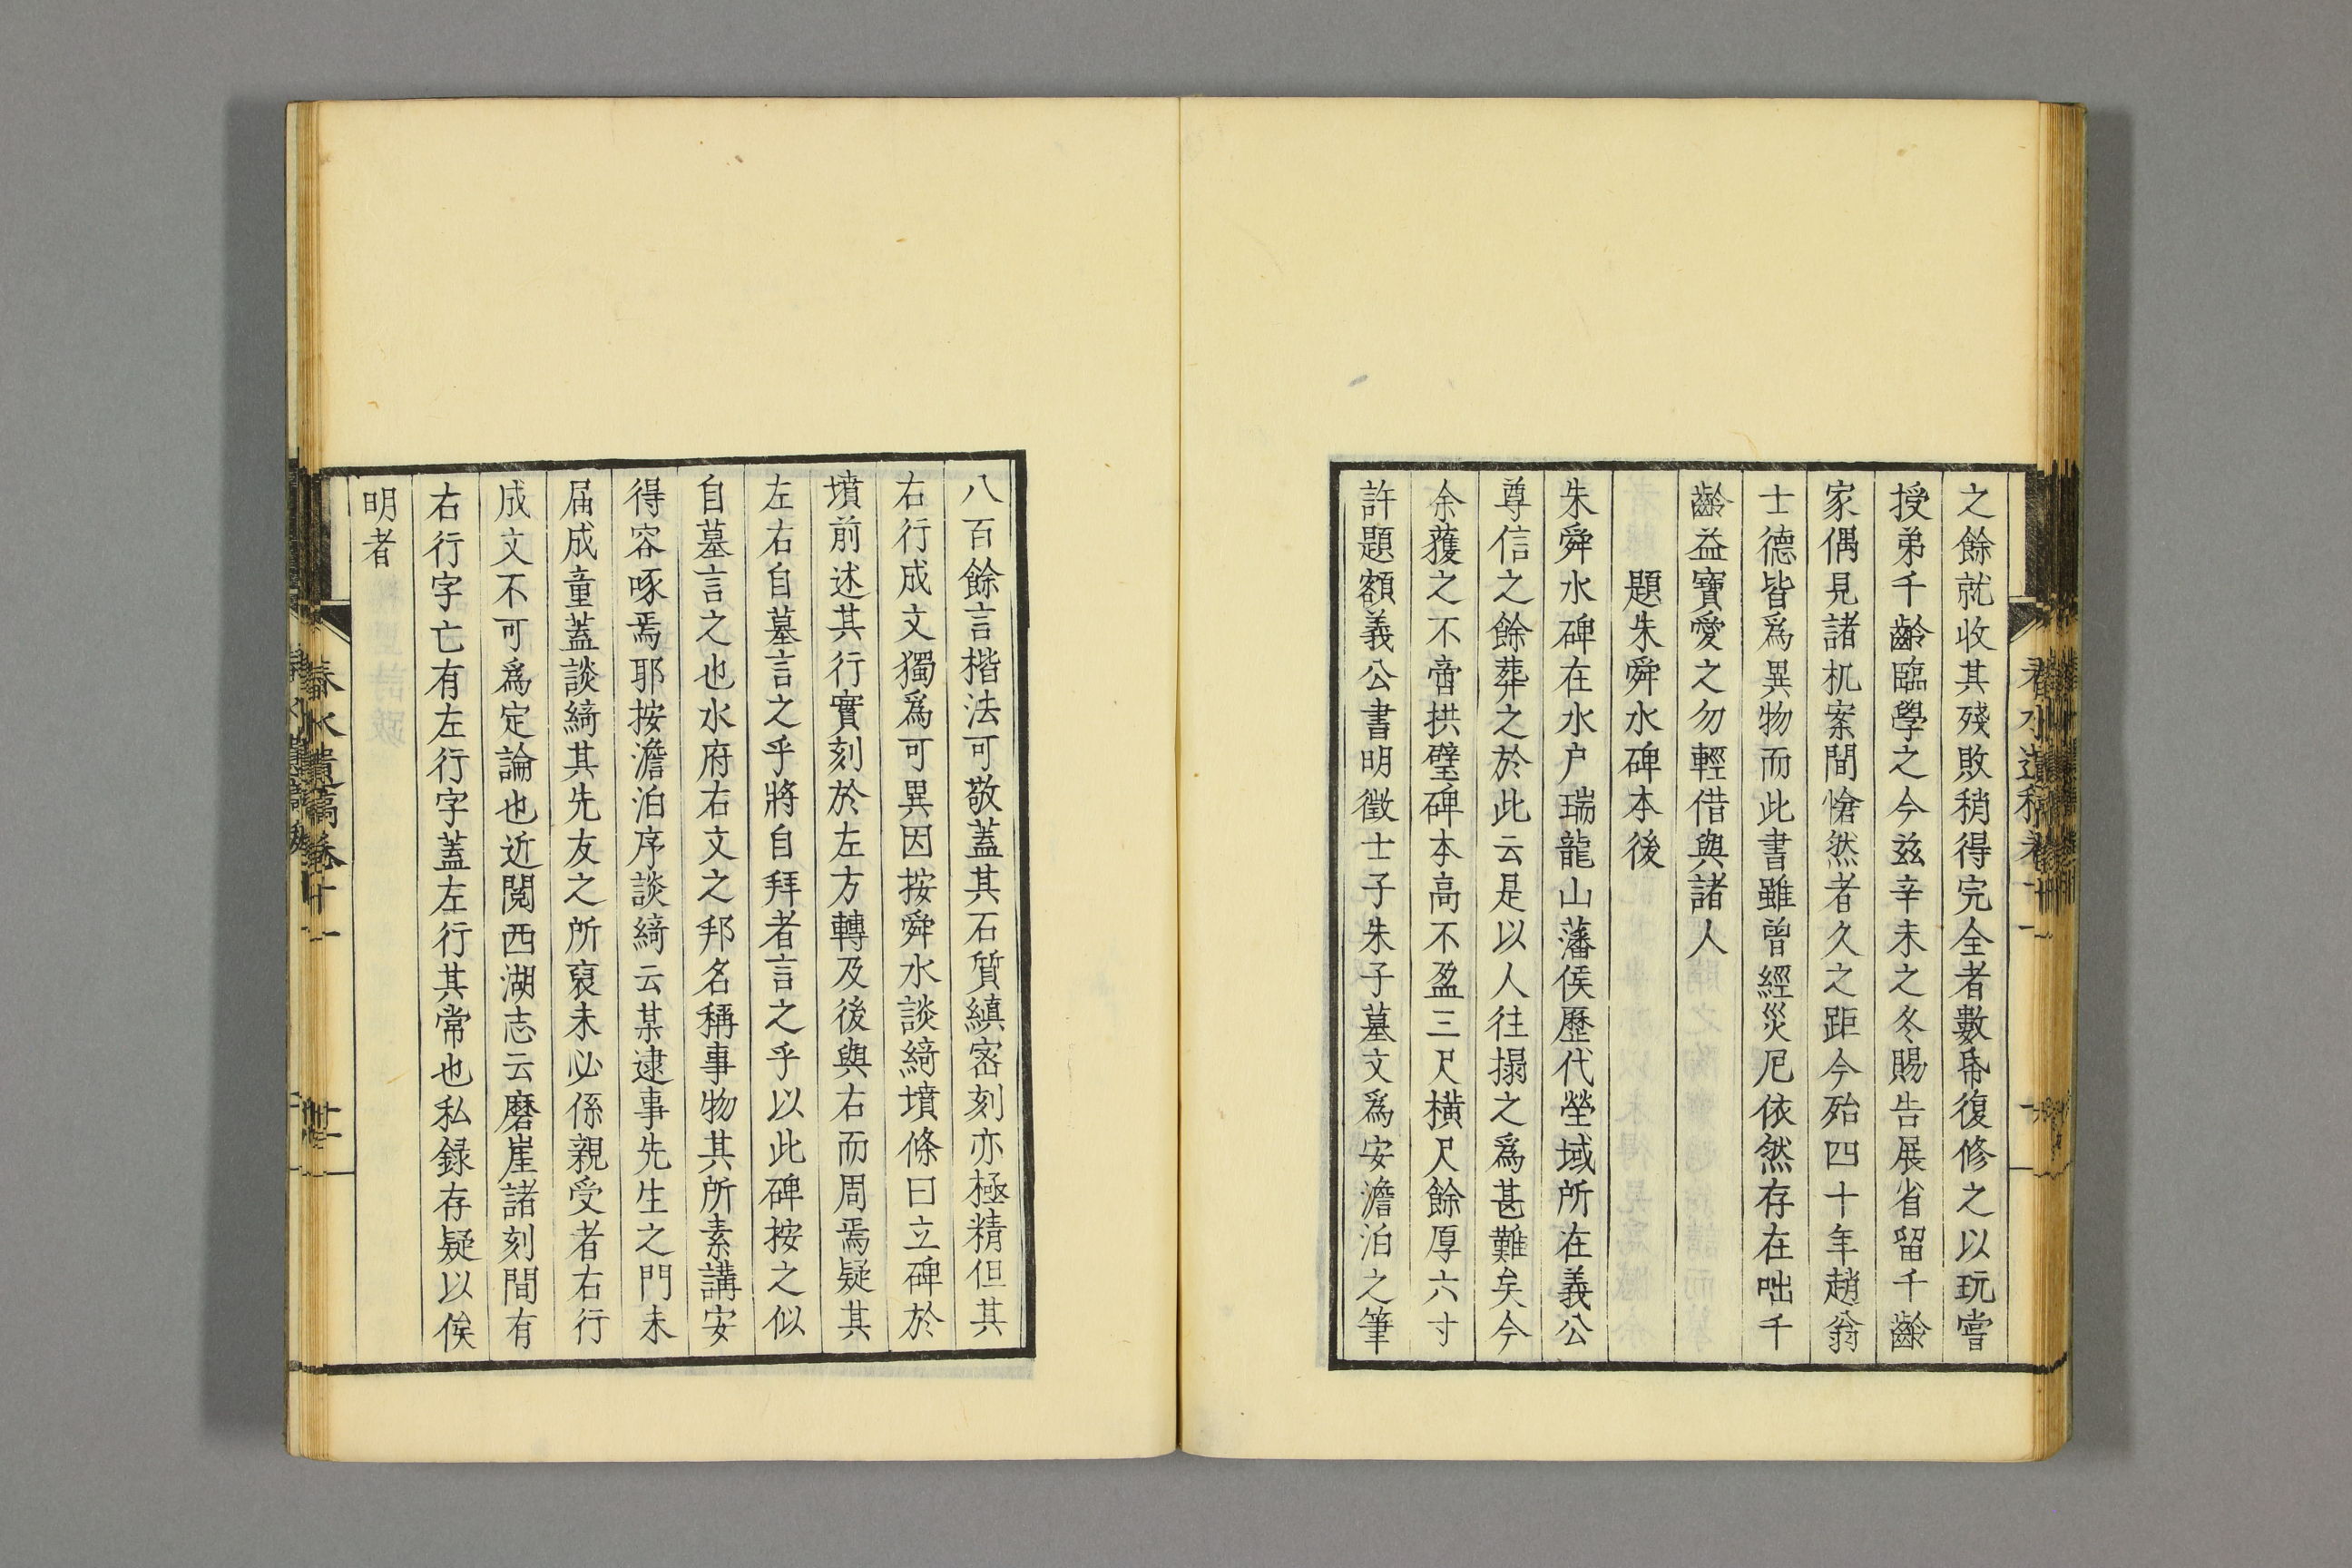 之餘就收其殘敗稍得完全者數帋復修之以玩嘗
授弟千齡臨學之今茲辛未之冬賜告展省留千齡
家偶見諸机案間愴然者久之距今殆四十年趙翁
士德皆爲異物而此書雖曾經災厄依然存在咄千
齡益寶愛之勿輕借與諸人
題朱舜水碑本後
朱舜水碑在水户瑞龍山藩侯歷代塋域所在義公
尊信之餘葬之於此云是以人往搨之爲甚難矣今
余獲之不啻拱璧碑本高不盈三尺橫尺餘厚六寸
許題額義公書明徵士子朱子墓文爲安澹泊之筆
八百餘言楷法可敬蓋其石質縝密刻亦極精但其
右行成文獨爲可異因按舜水談綺墳條曰立碑於
墳前述其行實刻於左方轉及後與右而周焉疑其
左右自墓言之乎將自拜者言之乎以此碑按之似
自墓言之也水府右文之邦名稱事物其所素講安
得容啄焉耶按澹泊序談綺云某逮事先生之門未
届成童蓋談綺其先友之所裒未必係親受者右行
成文不可爲定論也近閱西湖志云磨崖諸刻間有
右行字亡有左行字蓋左行其常也私録存疑以俟
明者
春水遺稿卷十一